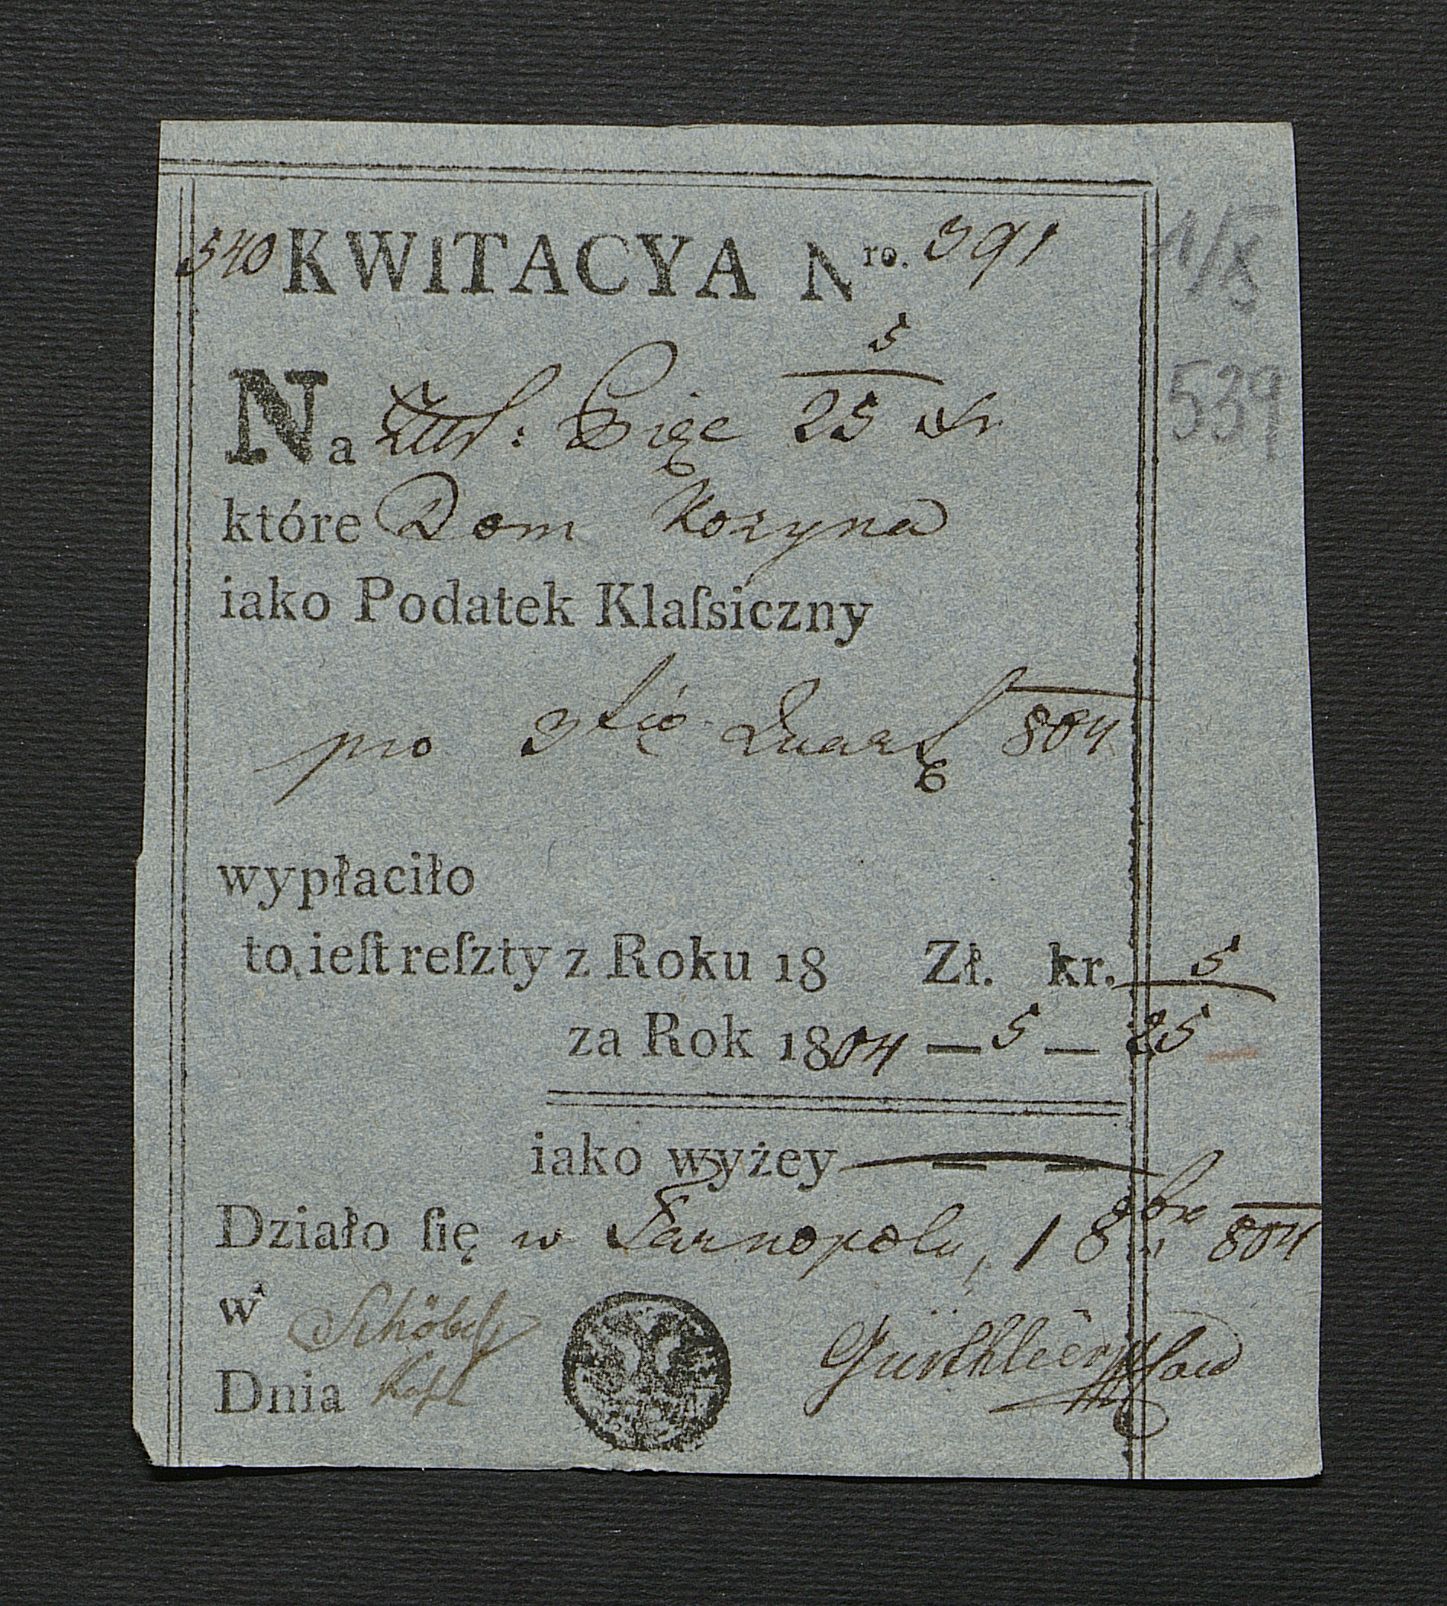 540 KWITACYA Nro. 391
1/X
539
5
Na Złł: Pięc 25 xr
które Dom Kozyna
iako Podatek Klaſsiczny
pro 3tią Quart 804
wypłaciło
to ieſt reſzty z Roku 18 Zł. kr. 5
za Rok 1804 — 5 — 25
iako wyżey — —
Działo ſię w Tarnopolu, 1 8bre 804
w
Dnia